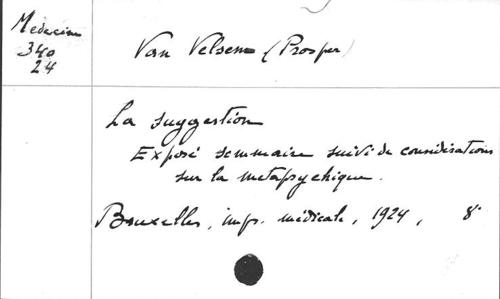 Médecine
340
24
Van Velsen (Prosper)
La suggestion
Exposé sommaire suivi de considérations
sur la métapsychique.
Bruxelles, imp. médicale, 1924, 8°